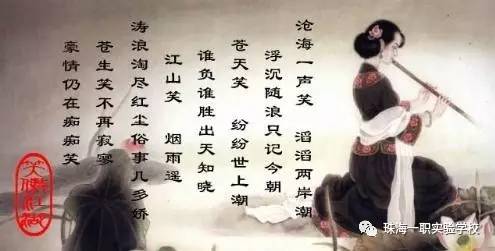 沧海一声笑 滔滔两岸潮
浮沉随浪只记今朝
苍天笑 纷纷世上潮
谁负谁胜出天知晓
江山笑 烟雨遥
涛浪淘尽红尘俗事几多娇
苍生笑不再寂寥
豪情仍在痴痴笑
珠海一职实验学校